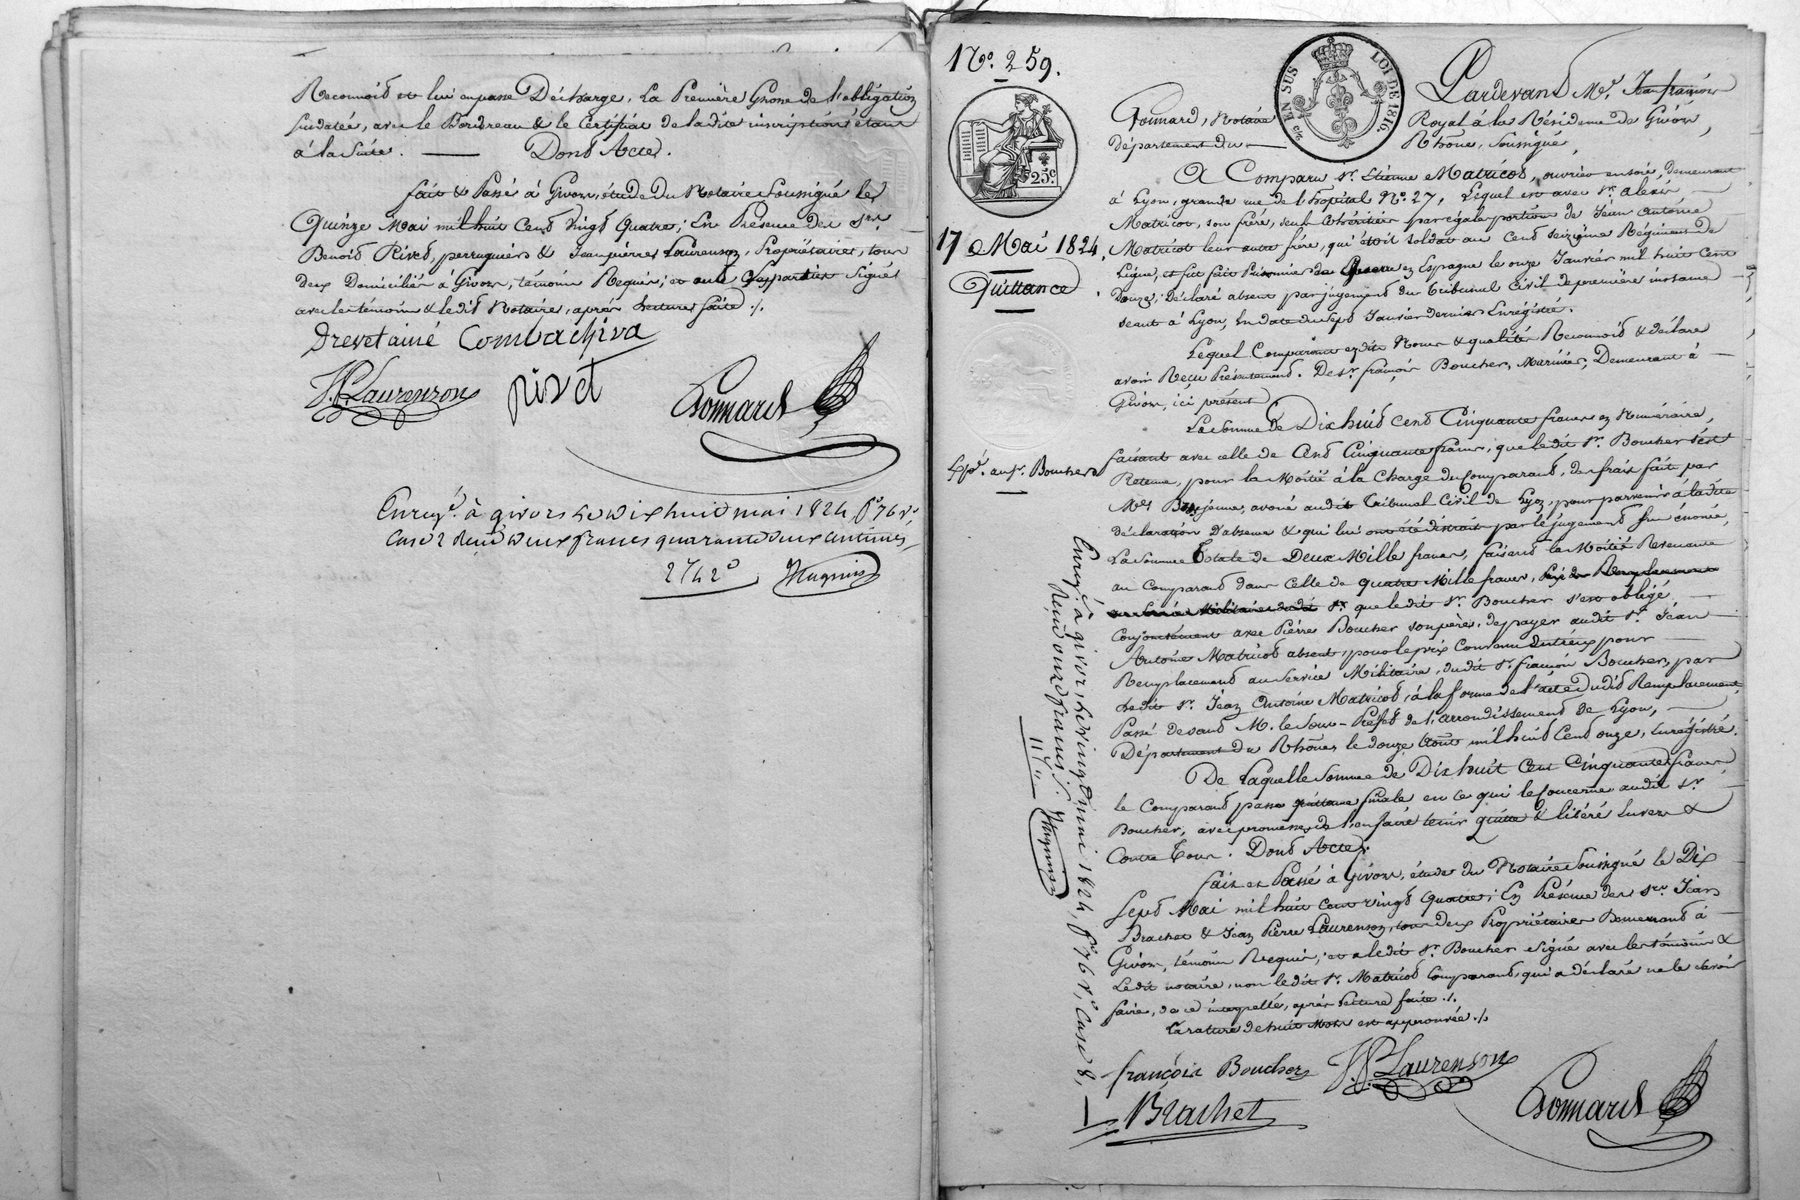 Reconnoit et lui en passe Décharge. La Première Grosse de l'obligation
susdatée, avec le Bordereau & le Certifiat de la dite inscription étant
à la suite. — Dont Acte.
fait & Passé à Givors, étude du Notaire Soussigné le
Quinze Mai mil huit Cent vingt Quatre; En Présence des Srs
Benoit Rivet, perruquier & Jean pierre Laurenson, Propriétaire, tous
deux Domiciliés à Givors, témoins Requis; et ont les parties signé
avec les témoins & le dit Notaire, après Lecture faite ./.
Drevet ainé Combachiva
J.P. Laurenson pivet Gonnard
Enreg.t à givors Le dix huit mai 1824, fo 76 vo,
Case 2 Reçu deux francs quarante deux centimes
2f 42c Hugnin
No. 259.
EN SUS LOI DE 1816
525c
17 Mai 1824.
Quittance
Exp.é au Sr. Boucher
Pardevant Me. Jean françois
Gonnard, Notaire Royal à la Résidence de Givors,
Département du Rhône, Soussigné,
A Comparu Sr. Etienne Matricot, ouvrier en soie, demeurant
à Lyon, grande rue de l'hopital No. 27, Lequel est avec Sr. Alexis
Matricot, son frère, seul Cohéritier par égale portion de Jean Antoine
Matricot leur autre frère, qui étoit soldat au Cent seizième Régiment de
Ligne, et fut fait Prisonnier de Guerre en Espagne le onze Janvier mil huit Cent
Douze, Déclaré absent par jugement du Tribunal Civil de première instance
séant à Lyon, En date du sept Janvier dernier Enrégistré.
Lequel Comparant esdits Noms & qualités Reconnoit & déclare
avoir Reçu Présentement. De Sr. françois Boucher, Marinier, Demeurant à
Givors, ici présent
La Somme de Dix huit Cent Cinquante francs en Numéraire,
faisant avec celle de Cent Cinquante francs, que le dit Sr. Boucher s'est
Retenue, pour la Moitié à la Charge du Comparant, des frais fait par
Me jeune, avoué au dit Tribunal Civil de Lyon, pour parvenir à la dite
déclaration D'absence & qui lui ont été distrait par le jugement sus énoncé,
La somme Totale de Deux Mille francs, faisant la Moitié Revenant
au Comparant dans Celle de quatre Mille francs, prix du Remplacement
au Service Militaire dudit Sr. que le dit Sr. Boucher s'est obligé
Conjointement avec Pierre Boucher son père, de payer au dit Sr. Jean
Antoine Matricot absent, pour le prix Convenu entr'eux pour
Remplacement au Service Militaire, du dit Sr. françois Boucher, par
Le dit Sr. Jean Antoine Matricot, à la forme de l'acte Dudit Remplacement
Passé devant M. le Sous-Préfet de l'arrondissement de Lyon,
Département du Rhône, le douze Aout mil huit Cent onze, Enrégistré.
De Laquelle Somme de Dix huit Cent Cinquante francs
le Comparant passe quittance finale en ce qui le Concerne au dit Sr.
Boucher, avec promesse de l'en faire tenir quitte & libéré Envers &
Contre Tous. Dont Acte.
Fait et Passé à Givors, étude du Notaire Soussigné le Dix
Sept Mai mil huit cent vingt Quatre; En Présence des Srs. Jean
Brachet & Jean Pierre Laurenson, tous deux Propriétaires Demeurant à
Givors, témoins Requis; et a le dit Sr. Boucher signé avec les témoins &
Le dit notaire, non le dit Sr. Matricot Comparant, qui a déclaré ne le savoir
faire, de ce interpellé, après Lecture faite ./.
La rature de huit Mots est approuvée ./.
françois Boucher J.P. Laurenson
Brachet Gonnard
Enreg.t à givors, Le vingt mai 1824, fo 76 vo, Case 8,
Reçu onze francs
11f " Hugnin